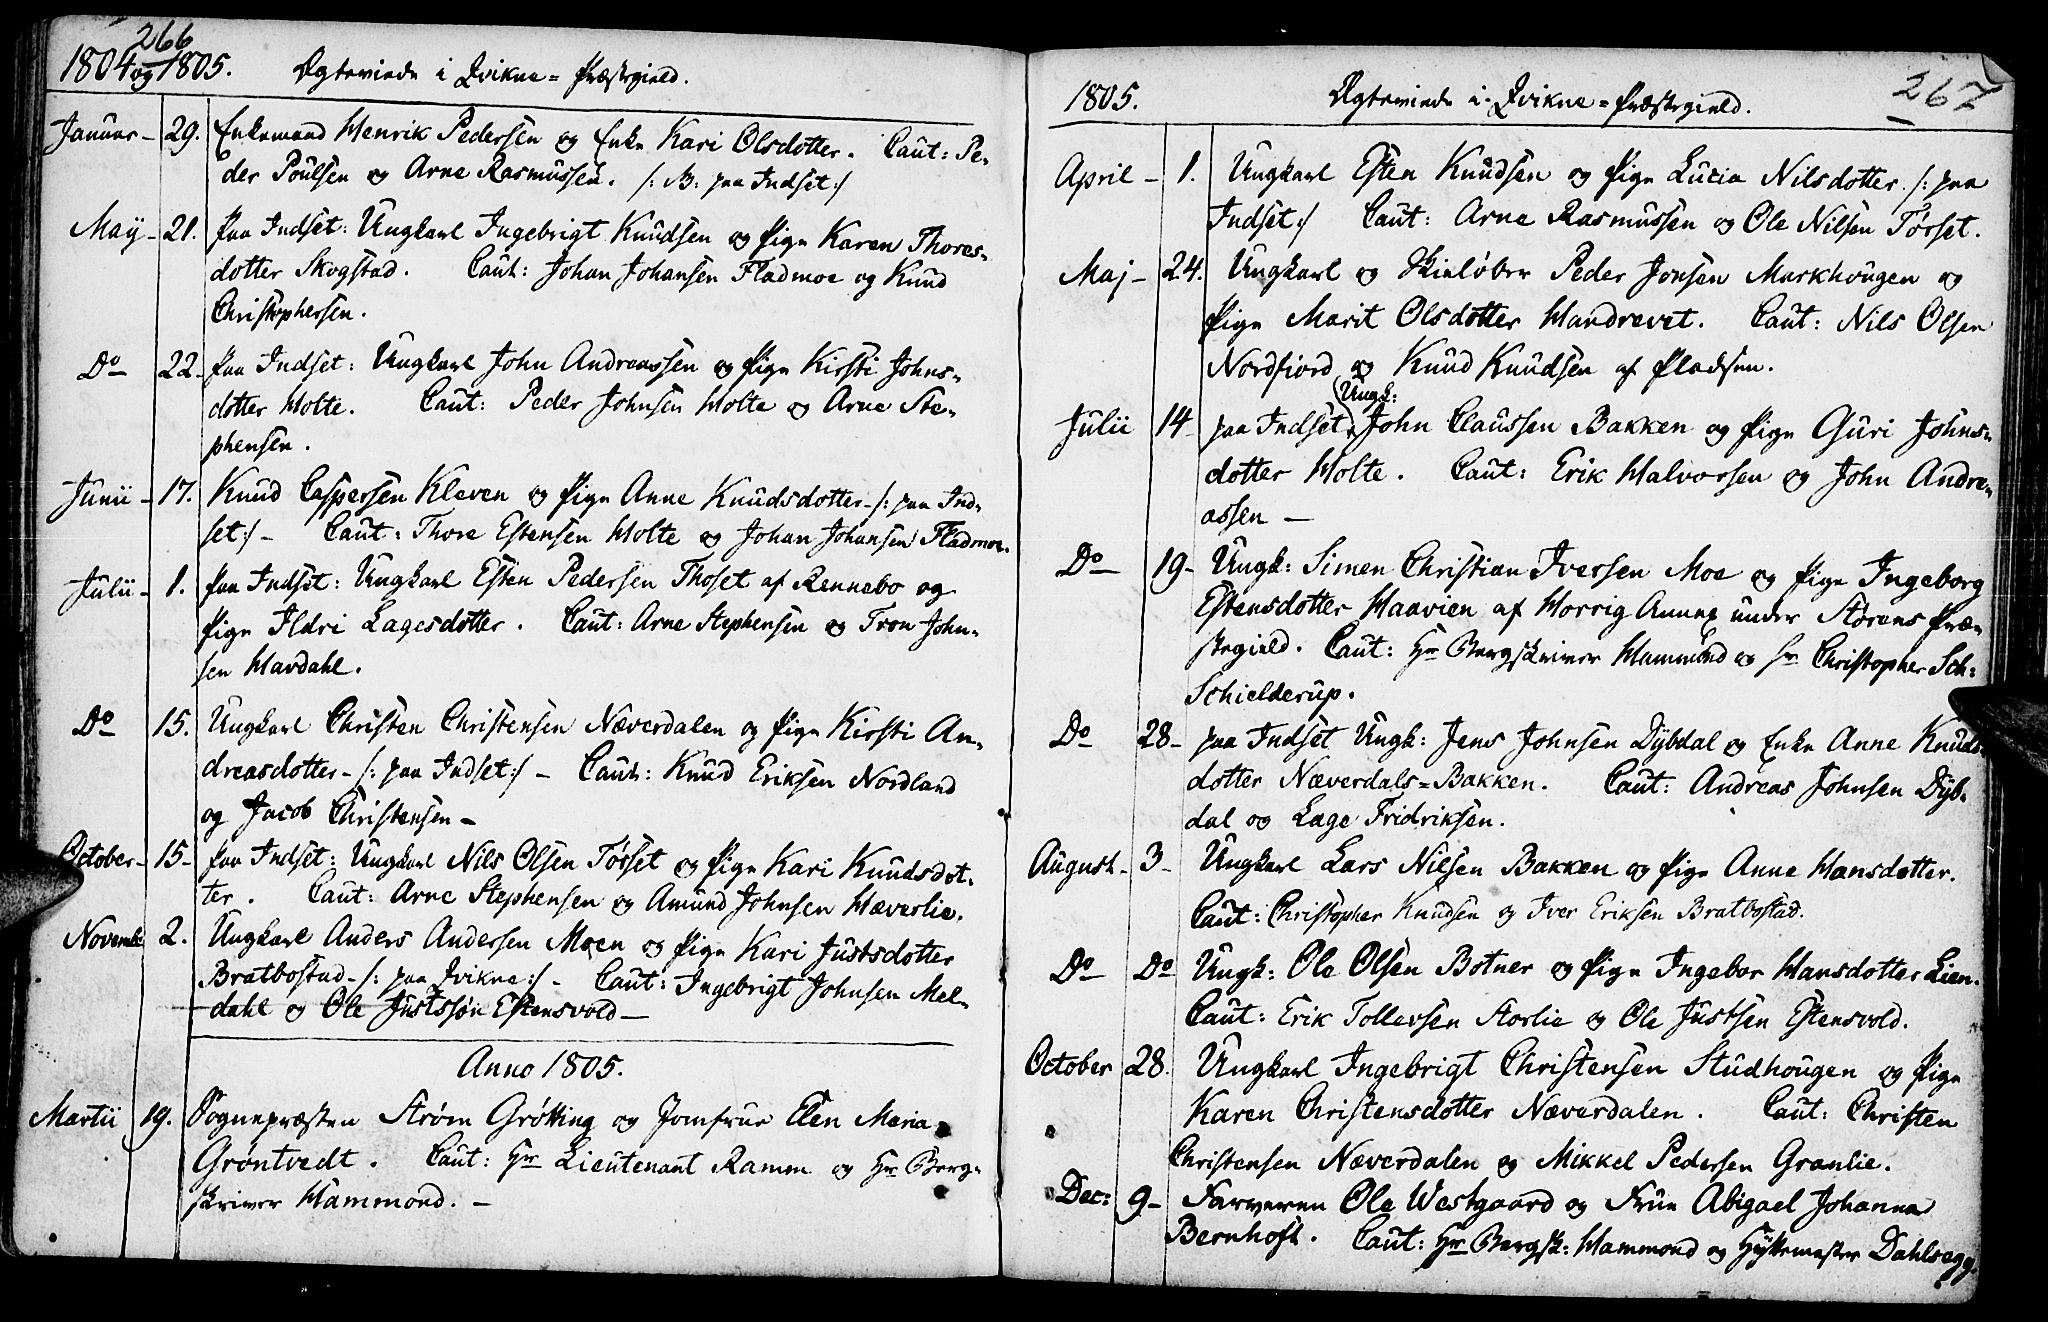 266
1804 og 1805. Ægteviede i Qvikne = Præstegield.
Januar - 29. Enkemand Henrik Pedersen og Enke Kari Olsdotter. Caut: Pe-
der Poulsen og Arne Rasmussen. /: B: paa Indset :/
May - 21. paa Indset: Ungkarl Ingebrigt Knudsen og Pige Karen Thores-
dotter Skogstad. Caut: Johan Johansen Fladmoe og Knud
Christophersen.
Do 22 - paa Indset: Ungkarl John Andreassen og Pige Kirsti Johns-
dotter Holte. Caut: Peder Johnsen Holte og Arne Ste-
phensen.
Junii - 17. Knud Caspersen Kleven og Pige Anne Knudsdotter - /: paa Ind-
set :/ - Caut: Thore Estensen Holte og Johan Johansen Fladmoe.
Julii - 1. paa Indset: Ungkarl Esten Pedersen Thoset af Rennebo og
Pige Ildri Lagesdotter. Caut: Arne Stephensen og Tron John-
sen Havdahl.
Do 15. Ungkarl Christen Christensen Næverdalen og Pige Kirsti An-
dreasdotter - /: paa Indset :/ - Caut: Knud Eriksen Nordland
og Jacob Christensen -
October - 15 - paa Indset: Ungkarl Nils Olsen Tørset og Pige Kari Knudsdot-
ter. Caut: Arne Stephensen og Amund Johnsen Hæverlie.
Novembr 2. Ungkarl Anders Andersen Moen og Pige Kari Justsdotter
Bratbostad - /: paa Qvikne :/ - Caut: Ingebrigt Johnsen Mel-
dahl og Ole Justssøn Estensvold -
Anno 1805.
Martii 19. Sognepræsten Strøm Grøtting og Jomfrue Elen Maria
Grøntvedt. Caut: Hr Lieutenant Ramm og Hr Berg-
skriver Hammond. -
267
1805. Ægteviede i Qvikne = Præstegield.
April - 1. Ungkarl Esten Knudsen og Pige Lucia Nilsdotter /: paa
Indset :/ Caut: Arne Rasmussen og Ole Nilsen Tørset.
Maj - 24. Ungkarl og Skieløber Peder Jonsen Markhougen og
Pige Marit Olsdotter Handrevet. Caut: Nils Olsen
Nordfiord og Knud Knudsen af Pladsen.
Ungk:
Julii 14 - paa Indset, John Claussen Bakken og Pige Guri Johns-
dotter Holte. Caut: Erik Halvorsen og John Andre-
assen -
Do 19 - Ungk: Simen Christian Iversen Moe og Pige Ingeborg
Estensdotter Haavien af Horrig Annex under Størens Præ-
stegield. Caut: Hr Bergskriver Hammond og Hr Christopher Sch:
Schielderup.
Do 28 - paa Indset Ungk: Jens Johnsen Dybdal og Enke Anne Knuds-
dotter Næverdals = Bakken. Caut: Andreas Johnsen Dyb-
dal og Lage Fridriksen.
August - 3 - Ungkarl Lars Nilsen Bakken og Pige Anne Hansdotter.
Caut: Christopher Knudsen og Iver Eriksen Bratbostad.
Do Do Ungk: Ole Olsen Botner og Pige Ingebor Hansdotter Lien.
Caut: Erik Tollevsen Storlie og Ole Justsen Estensvold.
October 28. Ungkarl Ingebrigt Christensen Studhougen og Pige
Karen Christensdotter Næverdalen. Caut: Christen
Christensen Næverdalen og Mikkel Pedersen Granlie.
Dec: 9 - Farveren Ole Westgaard og Frue Abigael Johanna
Bernhoft. Caut: Hr Bergsk: Hammond og Hyttemester Dahlsegg.